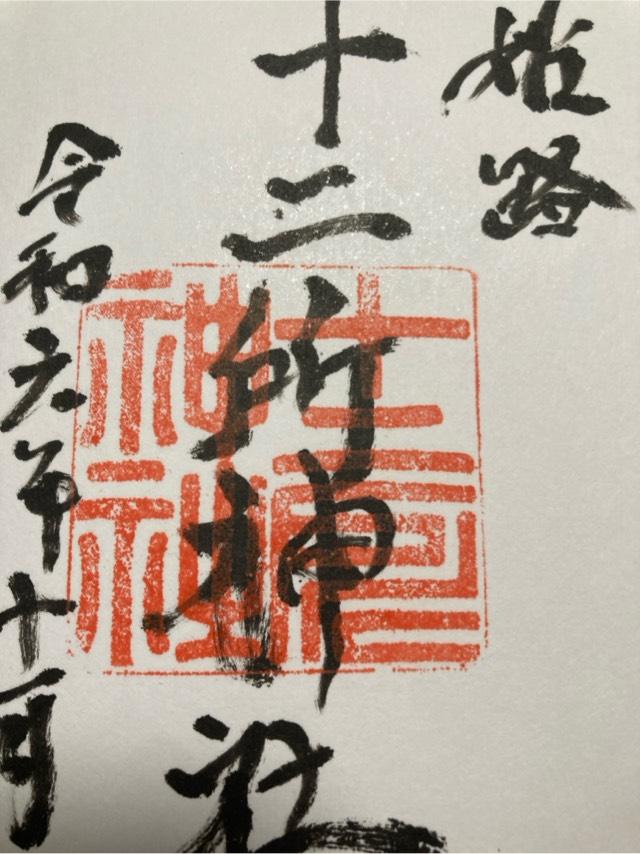 姫路
十二所神社
令和六年十一月
十二所
神社